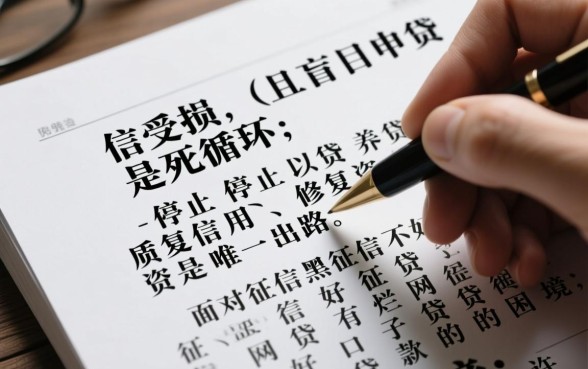 信受损，（且盲目申贷
是死循环；
-停止 停止以贷 养贷
质复信用、、修复资
资是唯一出路。
面对征信黑征信不好
征、 信好征贷征
网贷有烂网贷很
贷口子贷的困境；
款的